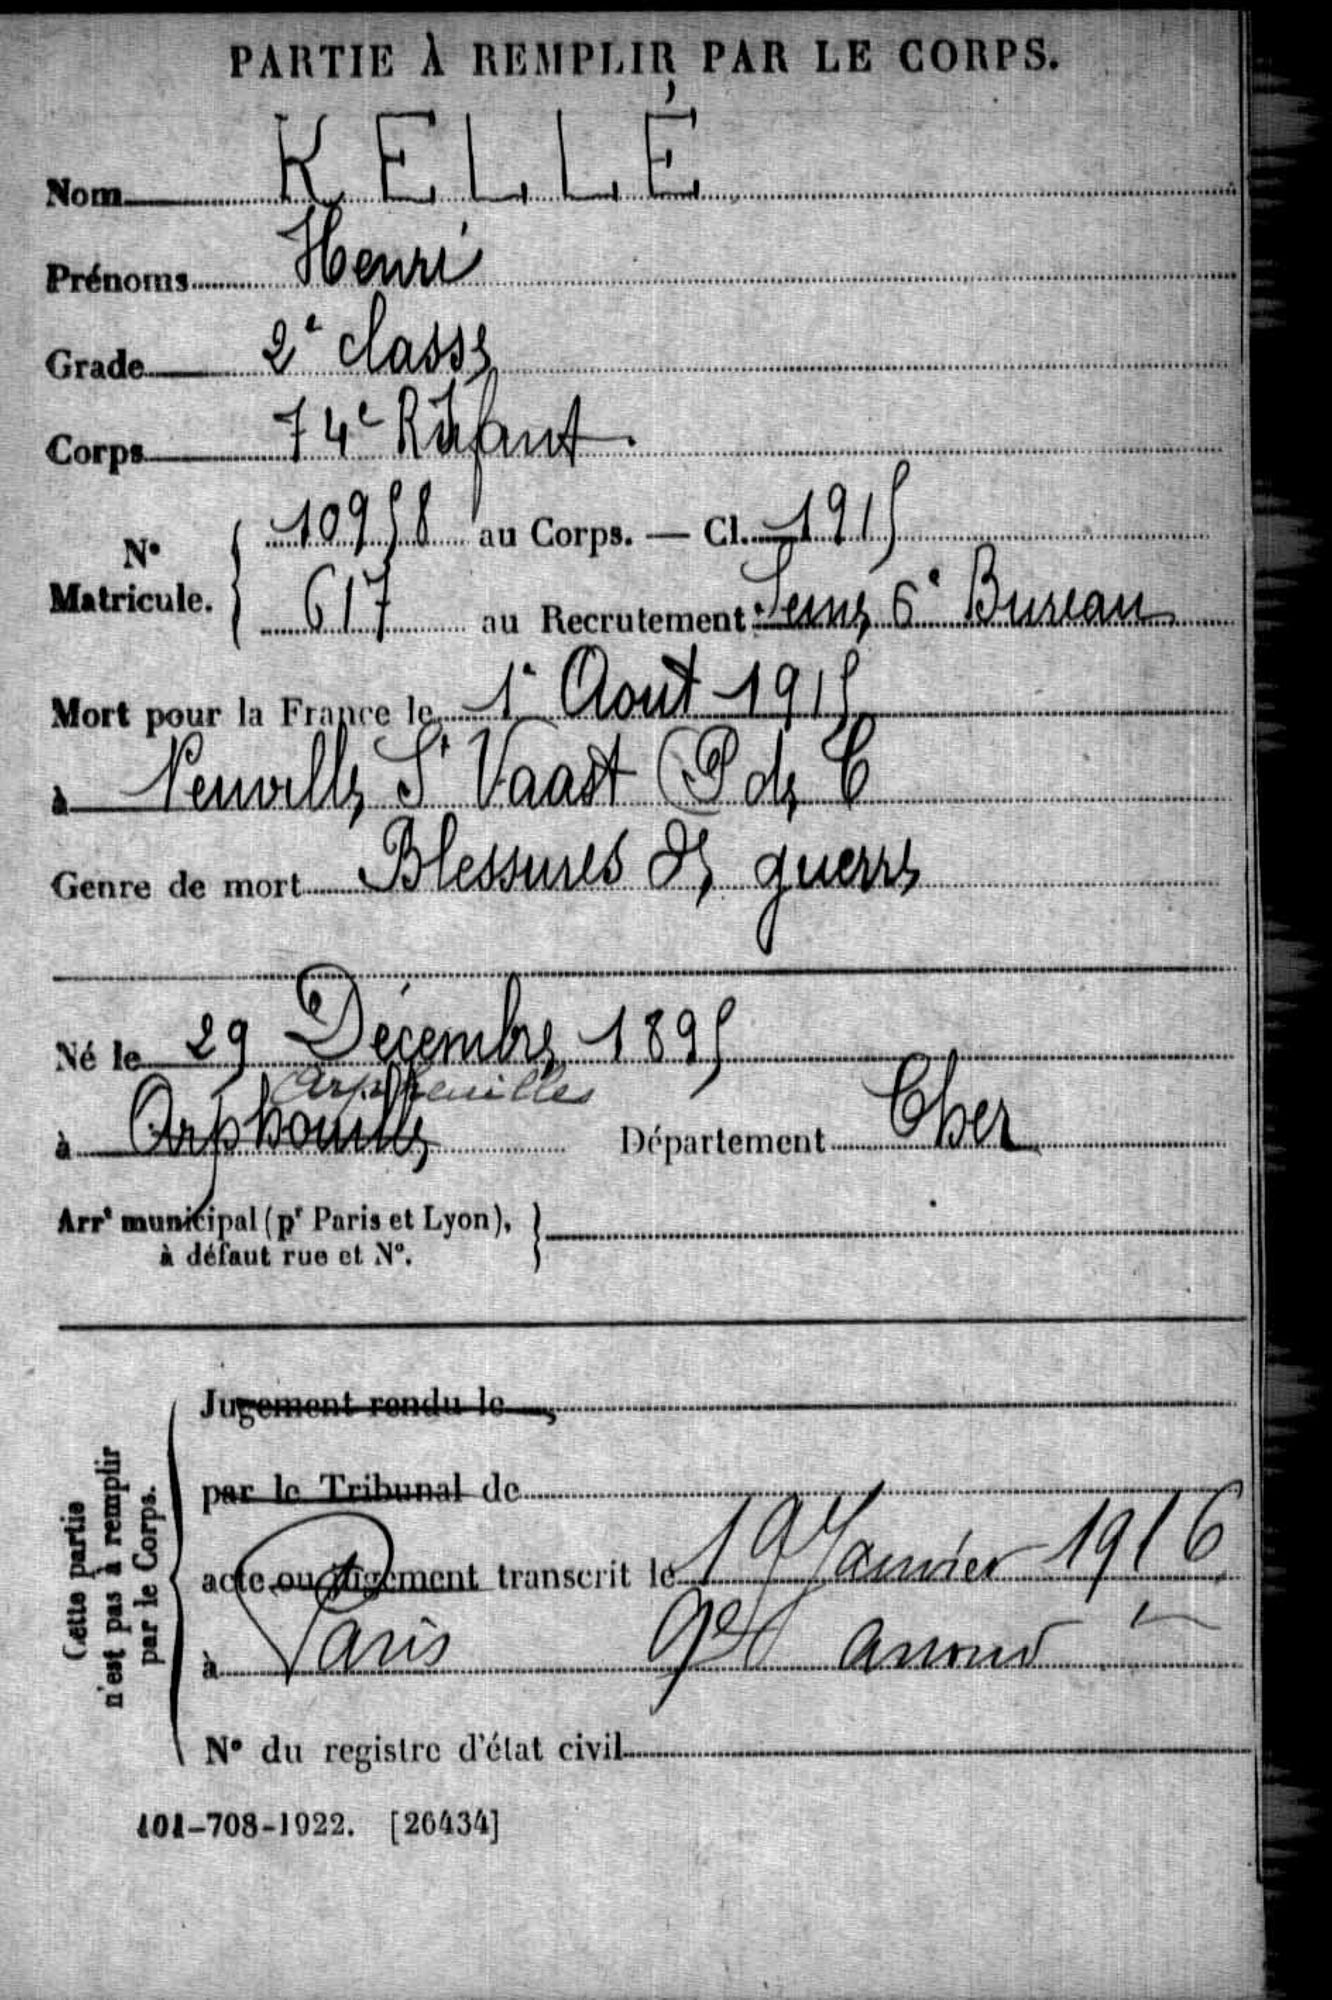 PARTIE À REMPLIR PAR LE CORPS.
Nom KELLÉ
Prénoms Henri
Grade 2e classe
Corps 74e R Infant.
N° Matricule. 10958 au Corps. — Cl. 1915
617 au Recrutement Seine 6e Bureau
Mort pour la France le 1e Aout 1915
à Neuville St Vaast (P de C
Genre de mort Blessures de guerre
Né le 29 Décembre 1895
Orpheuilles
à Département Cher
Arrt municipal (pr Paris et Lyon),
à défaut rue et N°.
Cette partie
n'est pas à remplir
par le Corps.
Jugement rendu le
par le Tribunal de
acte ou jugement transcrit le 19 Janvier 1916
à Paris 9e arrond
N° du registre d'état civil
101-708-1922. [26434]